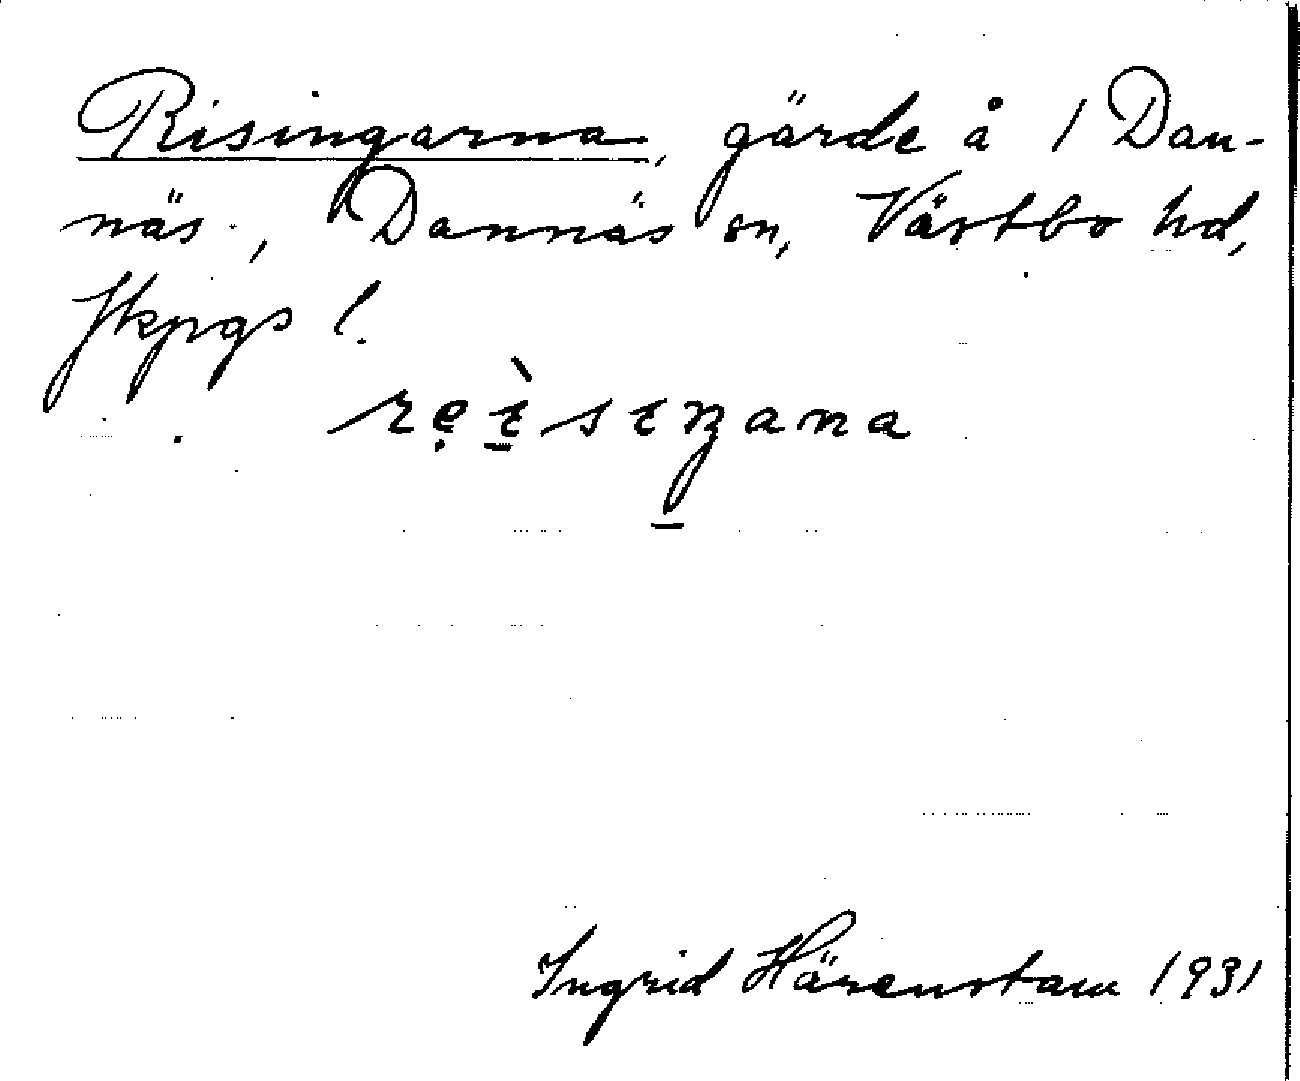 Risingarna, gärde å 1 Dan-
näs, Dannäs sn, Västbo hd,
Jkpgs l.
rẹɪ̠̀sɪŋana
Ingrid Härenstam 1931